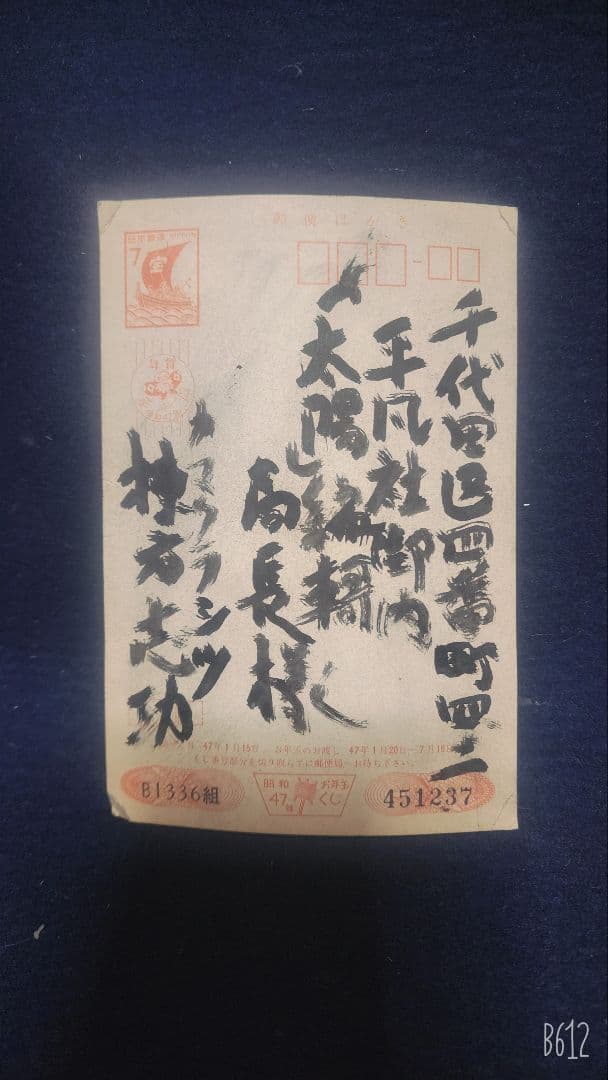 郵便はがき
日本郵便 NIPPON
7
年賀
千代田区四番町四ノ二
平凡社御内
「太陽」編輯
局長様
カマクラシツ
棟方志功
47年1月15日 お年玉のお渡し 47年1月20日-7月19日
くじ番号部分を切り取らずに郵便局へお持ち下さい。
B1336組
昭和47年 お年玉くじ
451237
B612